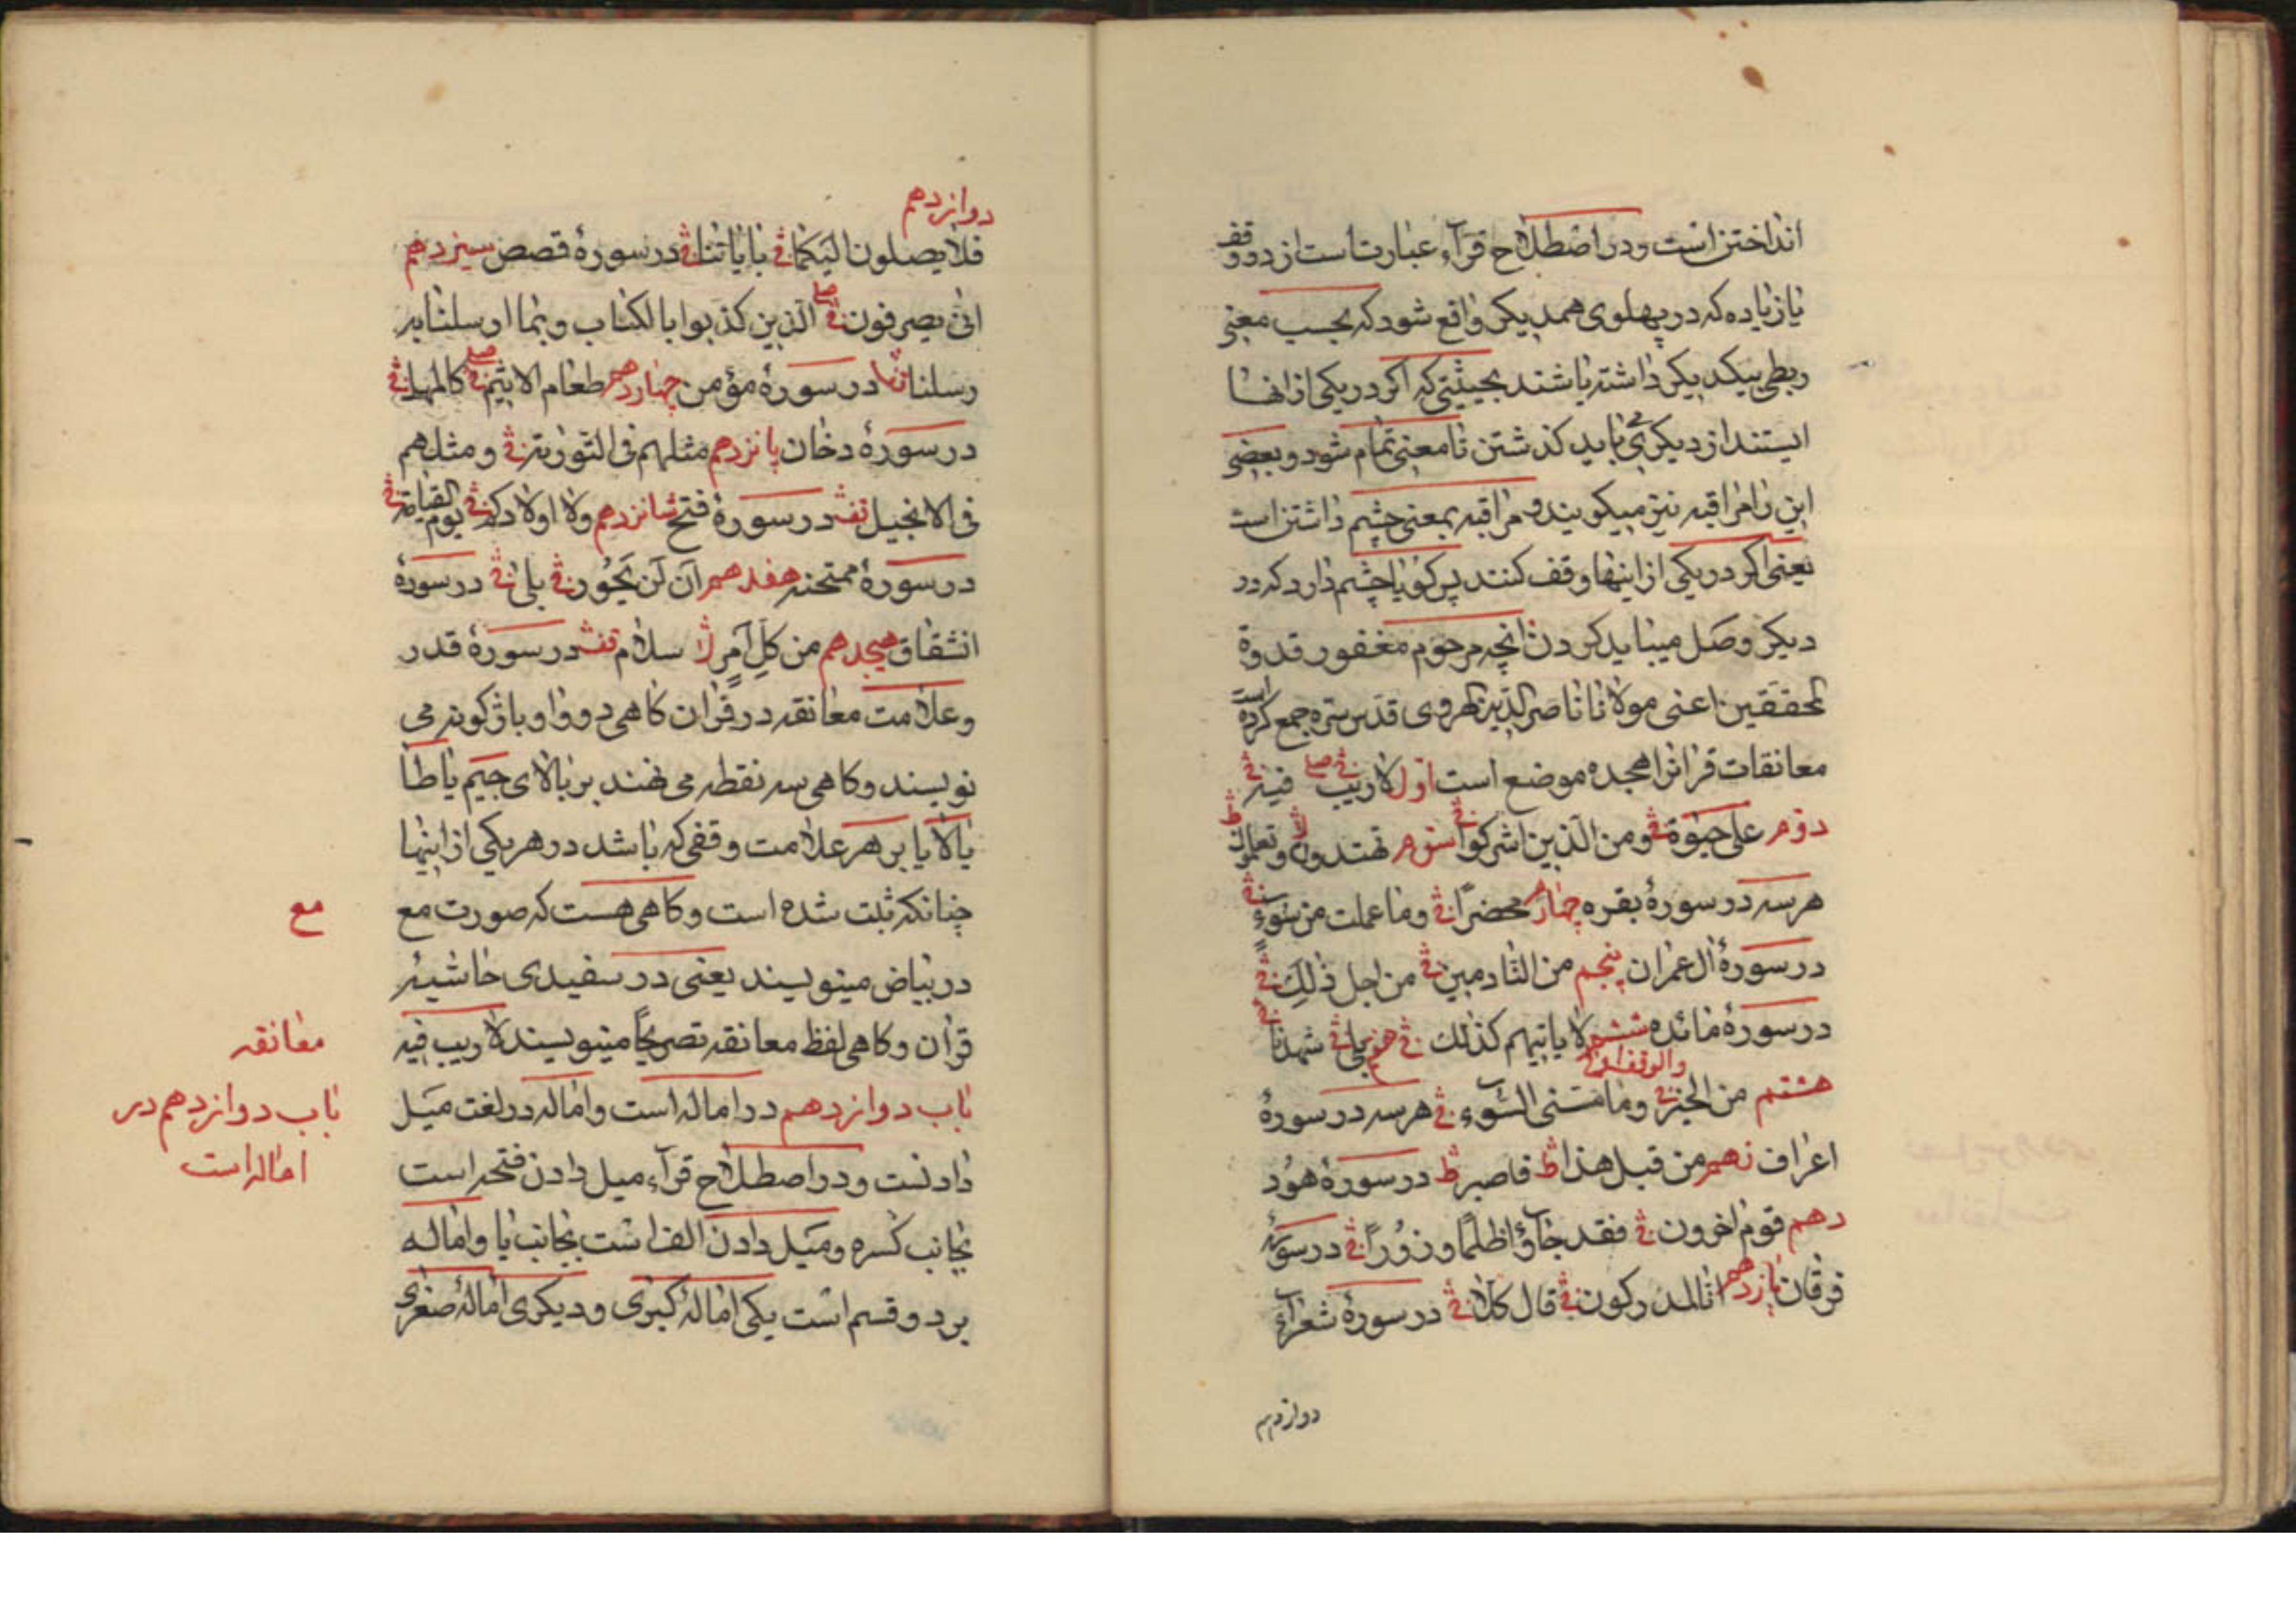 انداختن است و در اصطلاح قرآء عبارتست از دو وقف
یا زیاده که در پهلوی همدیکر واقع شود که بحسب معنی
ربطی بیکدیکر داشته باشند بحیثیتی که اکر در یکی از انها
ایستند از دیکری می باید کذشتن تا معنی تمام شود و بعضی
این را مراقبه نیز میکویند و مراقبه بمعنی چشم داشتن است
یعنی اکر در یکی از اینها وقف کنند پس کویا چشم دارد که در
دیکر وصل میباید کردن انچه مرحوم مغفور قدوة
المحققین اعنی مولانا ناصر الدین هروی قدس سره جمع کرده است
معانقات قرانرا هجده موضع است اول لا ریب فی صلے فیه فی
دوم علی حیوة فی ومن الذین اشرکوا فی سوم تهتدون لا وتعلمون ط
هر سه در سورهٔ بقره چهارم محضرًا فی وما عملت من سوء فی
در سورهٔ ال عمران پنجم من النادمین فی من اجل ذلك فی
در سورهٔ مائده ششم لا یاتیهم کذلك فی هفتم بلی فی شهدنا فی
هشتم من الخیر فی وما مسنی السوء فی هر سه در سورهٔ
اعراف نهم من قبل هذا ط فاصبر ط در سورهٔ هود
دهم قوم اخرون فی فقد جاؤا ظلما وزورًا فی در سورهٔ
فرقان یازدهم انا لمدرکون فی قال کلا فی در سورهٔ شعراء
دوازدهم
دوازدهم
فلا یصلون الیکما فی بایاتنا فی در سورهٔ قصص سیزدهم
انی یصرفون فی صلے الذین کذبوا بالکتاب وبما ارسلنا به
رسلنا در سورهٔ مؤمن چهاردهم طعام الاثیم فی صلے کالمهل فی
در سورهٔ دخان پانزدهم مثلهم فی التوریة فی ومثلهم
فی الانجیل قف در سورهٔ فتح شانزدهم ولا اولادکم فی یوم القیامة فی
در سورهٔ ممتحنه هفدهم ان لن یحور فی بلی فی در سورهٔ
انشقاق هیجدهم من کل امر لا سلام قف در سورهٔ قدر
وعلامت معانقه در قران کاهی دو واو باژکونه می
نویسند و کاهی سه نقطه می نهند بر بالای جیم یا طا
یا لا یا بر هر علامت وقفی که باشد در هر یکی از اینها
چنانکه ثبت شده است و کاهی هست که صورت مع
در بیاض مینویسند یعنی در سفیدی حاشیهٔ
قران و کاهی لفظ معانقه تصریحًا مینویسند لا ریب فیه
باب دوازدهم در اماله است و اماله در لغت میل
دادنست و در اصطلاح قرآء میل دادن فتحه است
بجانب کسره و میل دادن الف است بجانب یا و اماله
بر دو قسم است یکی امالهٔ کبری و دیکری امالهٔ صغری
مع
معانقه
باب دوازدهم در
اماله است